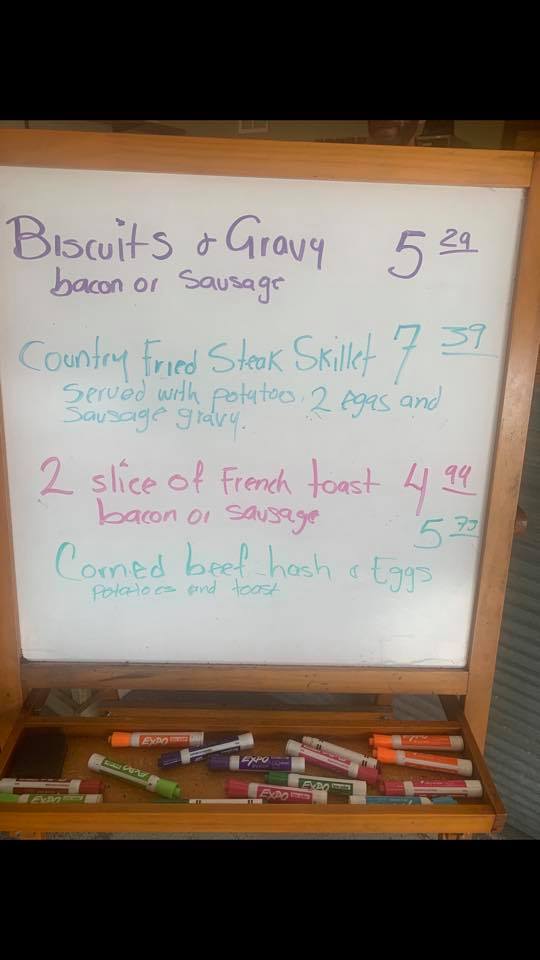 Biscuits & Gravy 5 29
bacon or Sausage
Country Fried Steak Skillet 7 39
Served with potatoes, 2 eggs and
Sausage gravy.
2 slice of French toast 4 94
bacon or sausage
5 75
Corned beef hash & Eggs
potatoes and toast
EXPO
EXPO
EXPO
EXPO
EXPO
EXPO